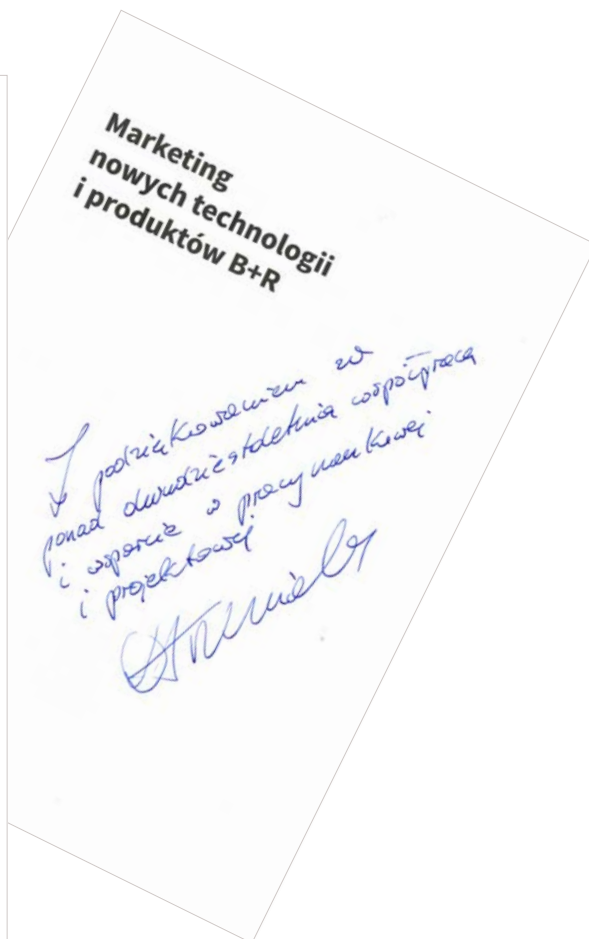 Marketing
nowych technologii
i produktów B+R
Z podziękowaniem za
ponad dwudziestoletnią współpracę
i wsparcie w pracy naukowej
i projektowej